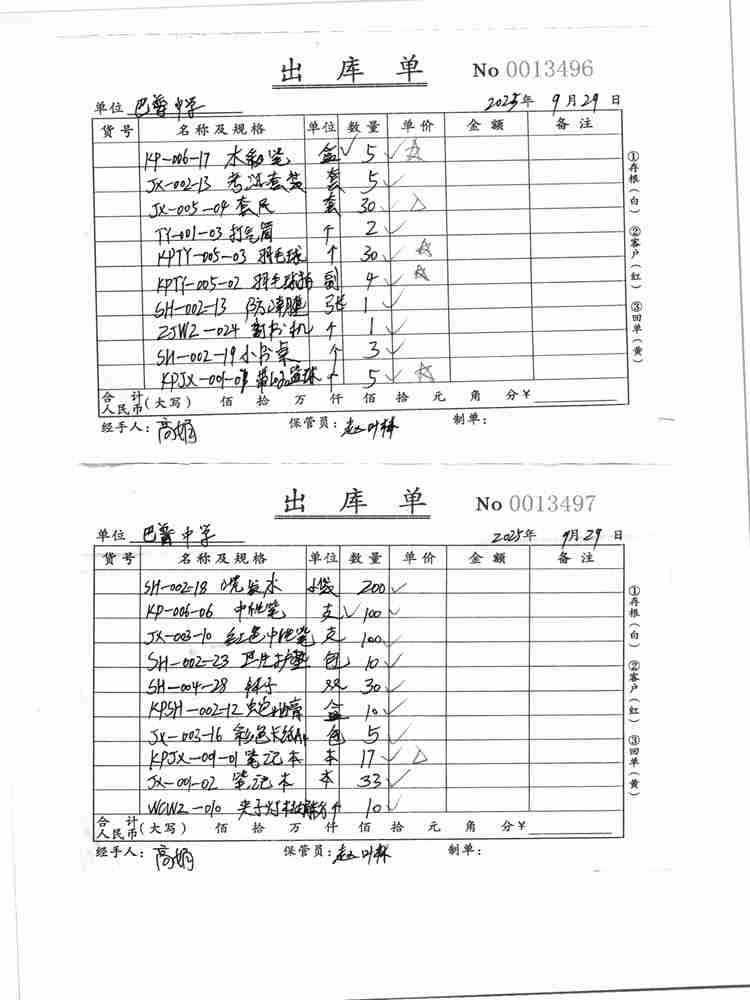 出 库 单 No 0013496
单位 巴普中学 2025年 9月29日
货号 名称及规格 单位 数量 单价 金额 备注
KP-006-17 水彩笔 盒 5
JX-002-13 考试套装 套 5
JX-005-04 套尺 套 30
TY-001-03 打气筒 个 2
KPTY-005-03 羽毛球 个 30
KPTY-005-02 羽毛球拍 副 4
SH-002-13 防潮膜 张 1
ZJWZ-024 对书机 个 1
SH-002-19 小书桌 个 3
KPJX-001- 篮球 个 5
合计人民币(大写) 佰 拾 万 仟 佰 拾 元 角 分¥
经手人:高娟 保管员:赵叶林 制单:
①存根(白) ②客户(红) ③回单(黄)
出 库 单 No 0013497
单位 巴普中学 2025年 9月29日
货号 名称及规格 单位 数量 单价 金额 备注
SH-002-18 洗发水 小袋 200
KP-006-06 中性笔 支 100
JX-003-10 红色中性笔 支 100
SH-002-23 卫生护垫 包 10
SH-004-28 袜子 双 30
KPSH-002-12 蛇油膏 盒 10
JX-003-16 彩色卡纸A4 包 5
KPJX-001-01 笔记本 本 17
JX-001-02 笔记本 本 33
WCWZ-010 夹子灯 个 10
合计人民币(大写) 佰 拾 万 仟 佰 拾 元 角 分¥
经手人:高娟 保管员:赵叶林 制单:
①存根(白) ②客户(红) ③回单(黄)